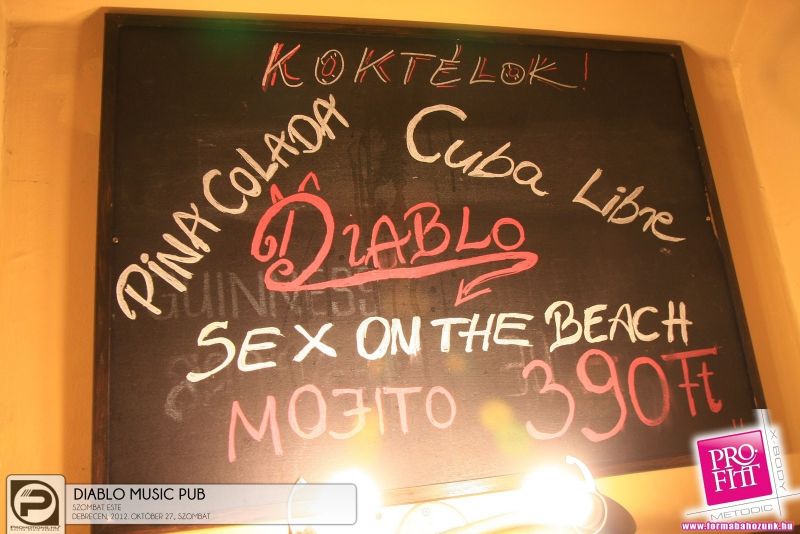 KOKTÉLOK!
PINA COLADA
Cuba Libre
DIABLO
GUINNESS
SEX ON THE BEACH
MOJITO 390 Ft
DIABLO MUSIC PUB
SZOMBAT ESTE
DEBRECEN, 2012. OKTÓBER 27., SZOMBAT
PRO-FITT
X-BODY
METODIC
www.formabahozunk.hu